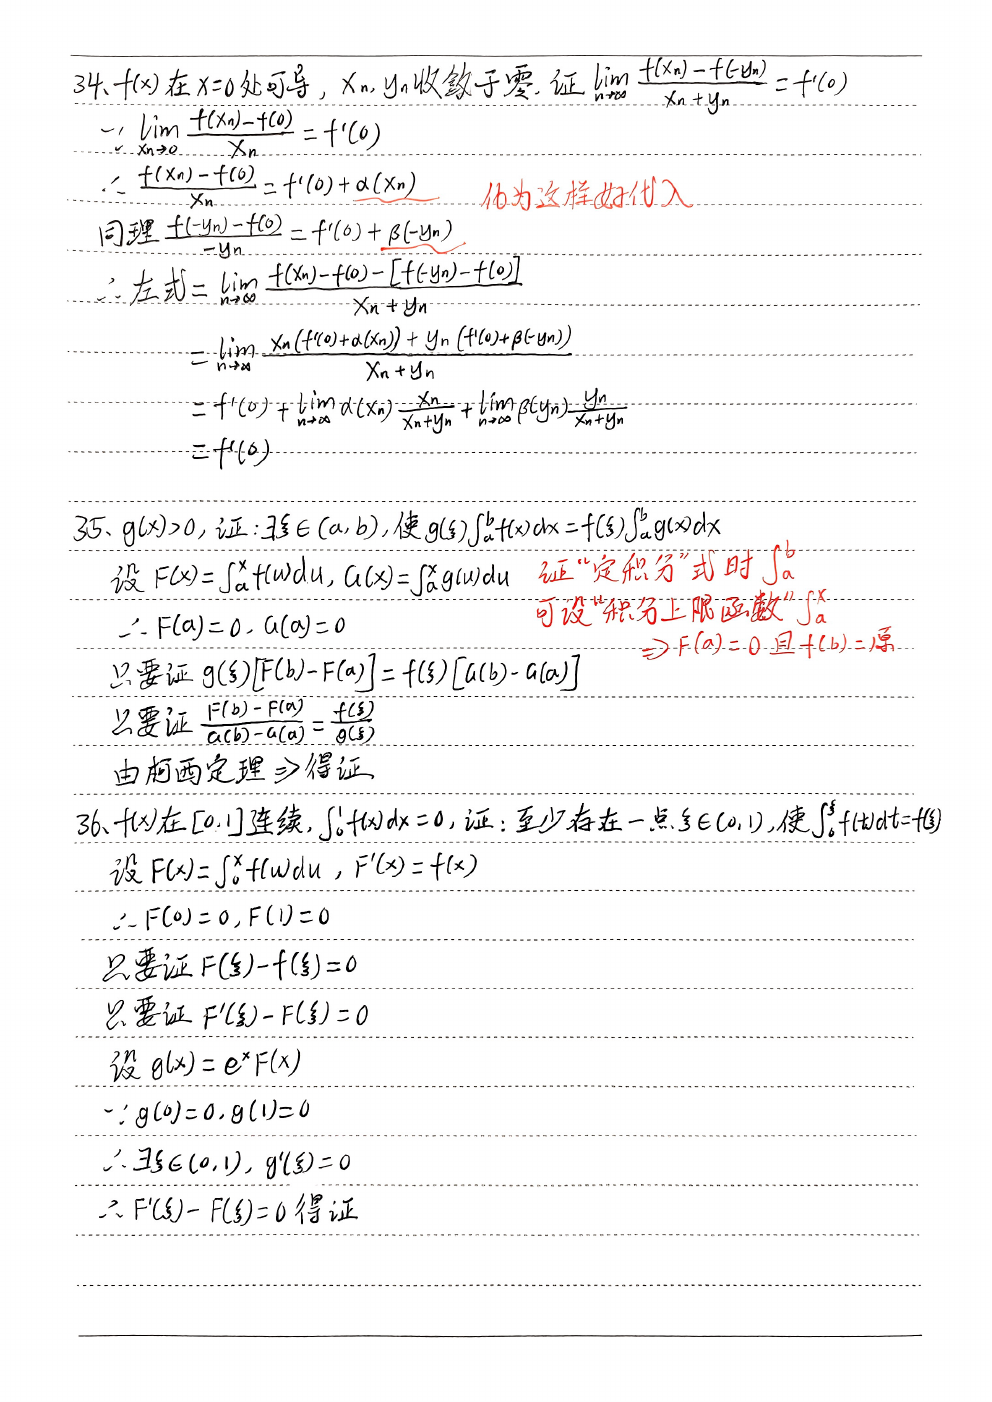 34、f(x)在x=0处可导，xn, yn收敛于零. 证 lim n→∞ (f(xn)-f(-yn))/(xn+yn) = f'(0)
∵ lim xn→0 (f(xn)-f(0))/xn = f'(0)
∴ (f(xn)-f(0))/xn = f'(0)+α(xn) 化为这样好代入
同理 (f(-yn)-f(0))/(-yn) = f'(0)+β(-yn)
∴左式= lim n→∞ (f(xn)-f(0)-[f(-yn)-f(0)])/(xn+yn)
= lim n→∞ (xn(f'(0)+α(xn))+yn(f'(0)+β(-yn)))/(xn+yn)
= f'(0)+ lim n→∞ α(xn) xn/(xn+yn) + lim n→∞ β(yn) yn/(xn+yn)
= f'(0)
35、g(x)>0, 证:∃ξ∈(a,b), 使g(ξ)∫ₐᵇf(x)dx=f(ξ)∫ₐᵇg(x)dx
设 F(x)=∫ₐˣf(u)du, G(x)=∫ₐˣg(u)du 证“定积分”式时∫ₐᵇ
可设“积分上限函数”∫ₐˣ
∴F(a)=0, G(a)=0
⇒F(a)=0且f(b)=原
只要证 g(ξ)[F(b)-F(a)]=f(ξ)[G(b)-G(a)]
只要证 (F(b)-F(a))/(G(b)-G(a)) = f(ξ)/g(ξ)
由柯西定理⇒得证
36、f(x)在[0,1]连续, ∫₀¹f(x)dx=0, 证: 至少存在一点ξ∈(0,1), 使∫₀^ξ f(t)dt=f(ξ)
设F(x)=∫₀ˣf(u)du, F'(x)=f(x)
∴F(0)=0, F(1)=0
只要证F(ξ)-f(ξ)=0
只要证 F'(ξ)-F(ξ)=0
设 g(x)=eˣF(x)
∵g(0)=0, g(1)=0
∴∃ξ∈(0,1), g'(ξ)=0
∴F'(ξ)-F(ξ)=0得证